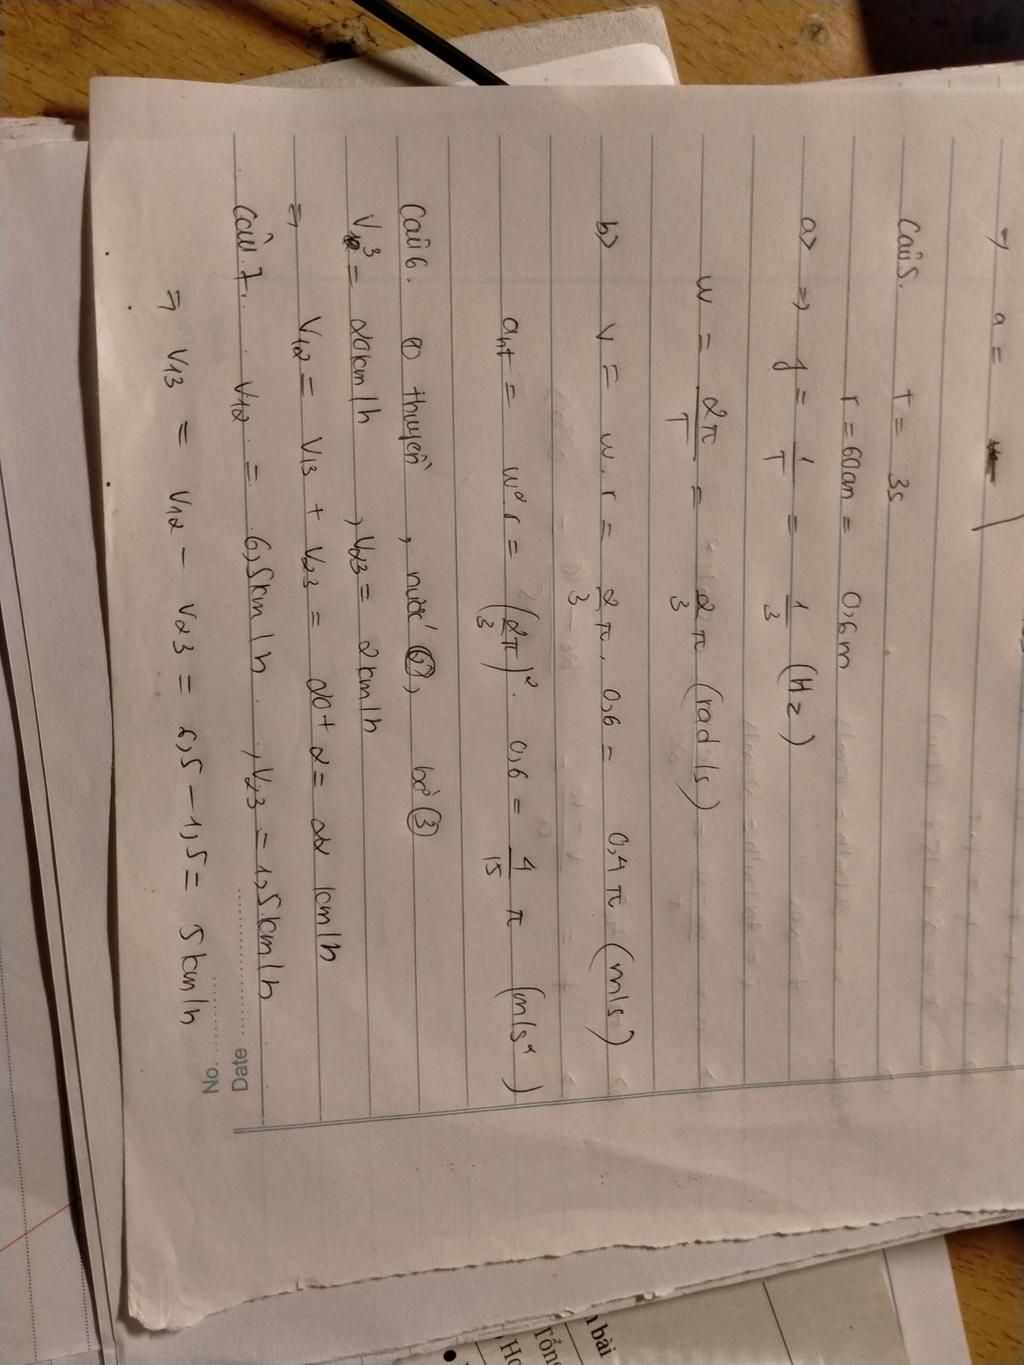 ⇒ a =
Câu 5. T = 3s
r = 60cm = 0,6m
a> ⇒ f = 1/T = 1/3 (Hz)
w = 2π/T = 2/3 π (rad/s)
b> v = w.r = 2/3 π. 0,6 = 0,4π (m/s)
aht = w².r = (2π/3)². 0,6 = 4/15 π (m/s²)
Câu 6. ① thuyền, nước ②, bờ ③
V₁₃ = 20km/h, V₂₃ = 2km/h
⇒ V₁₂ = V₁₃ + V₂₃ = 20 + 2 = 22 km/h
Câu 7. V₁₂ = 6,5km/h, V₂₃ = 1,5km/h
⇒ V₁₃ = V₁₂ - V₂₃ = 6,5 - 1,5 = 5 km/h
No.
Date
bài
Tổng